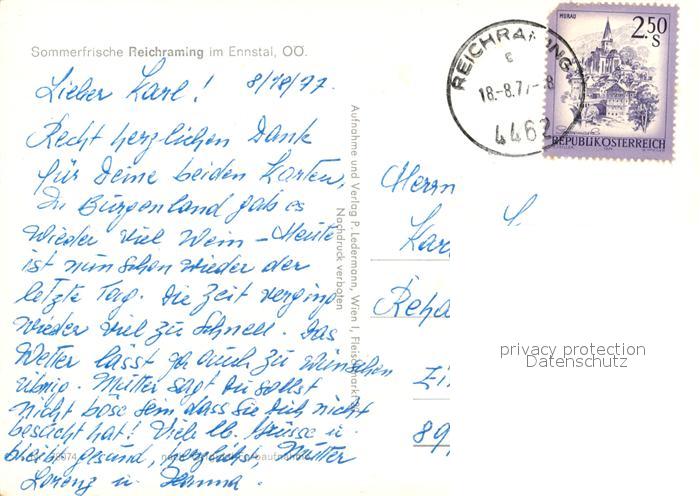 Sommerfrische Reichraming im Ennstal, OÖ.
Lieber Karl! 8/18/77.
Recht herzlichen Dank
für Deine beiden Karten,
Im Burgenland gab es
wieder viel Wein – Heute
ist nun schon wieder der
letzte Tag. Die Zeit verging
wieder viel zu schnell. Das
Wetter lässt ja auch zu wünschen
übrig. Mutter sagt Du sollst
nicht böse sein dass sie Dich nicht
besucht hat! Viele lb. Grüsse u.
bleib gesund, herzlichst, Mutter
Lorenz u. Hanna.
Aufnahme und Verlag P. Ledermann, Wien I, Fleischmarkt
Nachdruck verboten
REICHRAMING
18.-8.77-8
4462
MURAU
2.50
S
REPUBLIK ÖSTERREICH
Herrn
Kar
Reha
Zi
89
privacy protection
Datenschutz